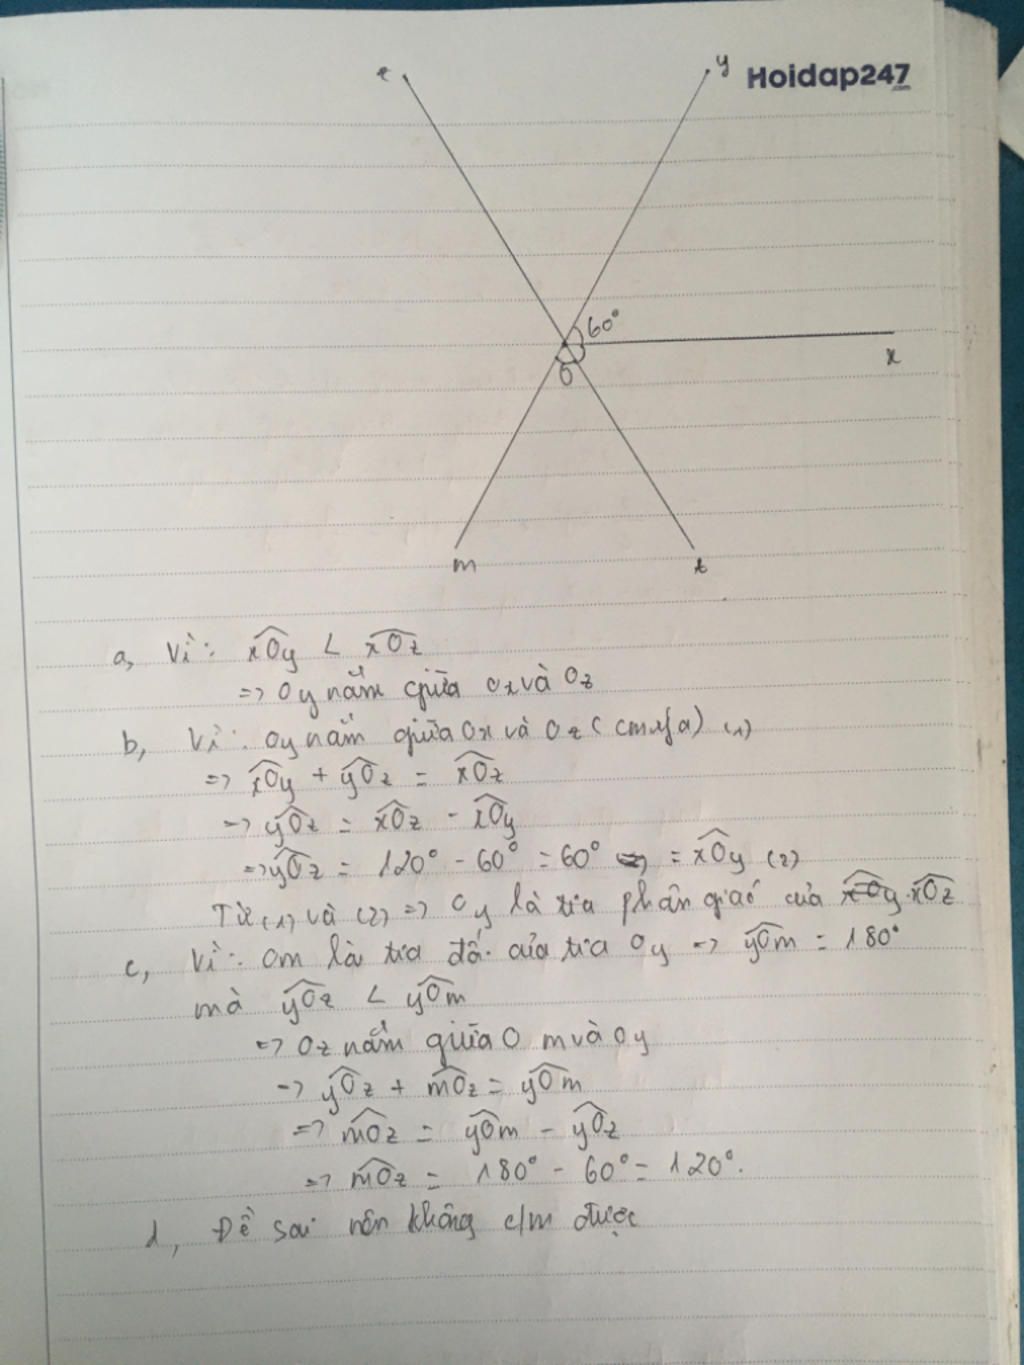 z
y
Hoidap247
.com
60°
x
O
m
t
a, Vì: xOy < xOz
=> Oy nằm giữa Ox và Oz
b, Vì: Oy nằm giữa Ox và Oz (cm ý a) (1)
=> xOy + yOz = xOz
=> yOz = xOz - xOy
=> yOz = 120° - 60° = 60° = xOy (2)
Từ (1) và (2) => Oy là tia phân giác của xOz
c, Vì: Om là tia đối của tia Oy => yOm = 180°
mà yOz < yOm
=> Oz nằm giữa Om và Oy
=> yOz + mOz = yOm
=> mOz = yOm - yOz
=> mOz = 180° - 60° = 120°.
d, Đề sai nên không c/m được